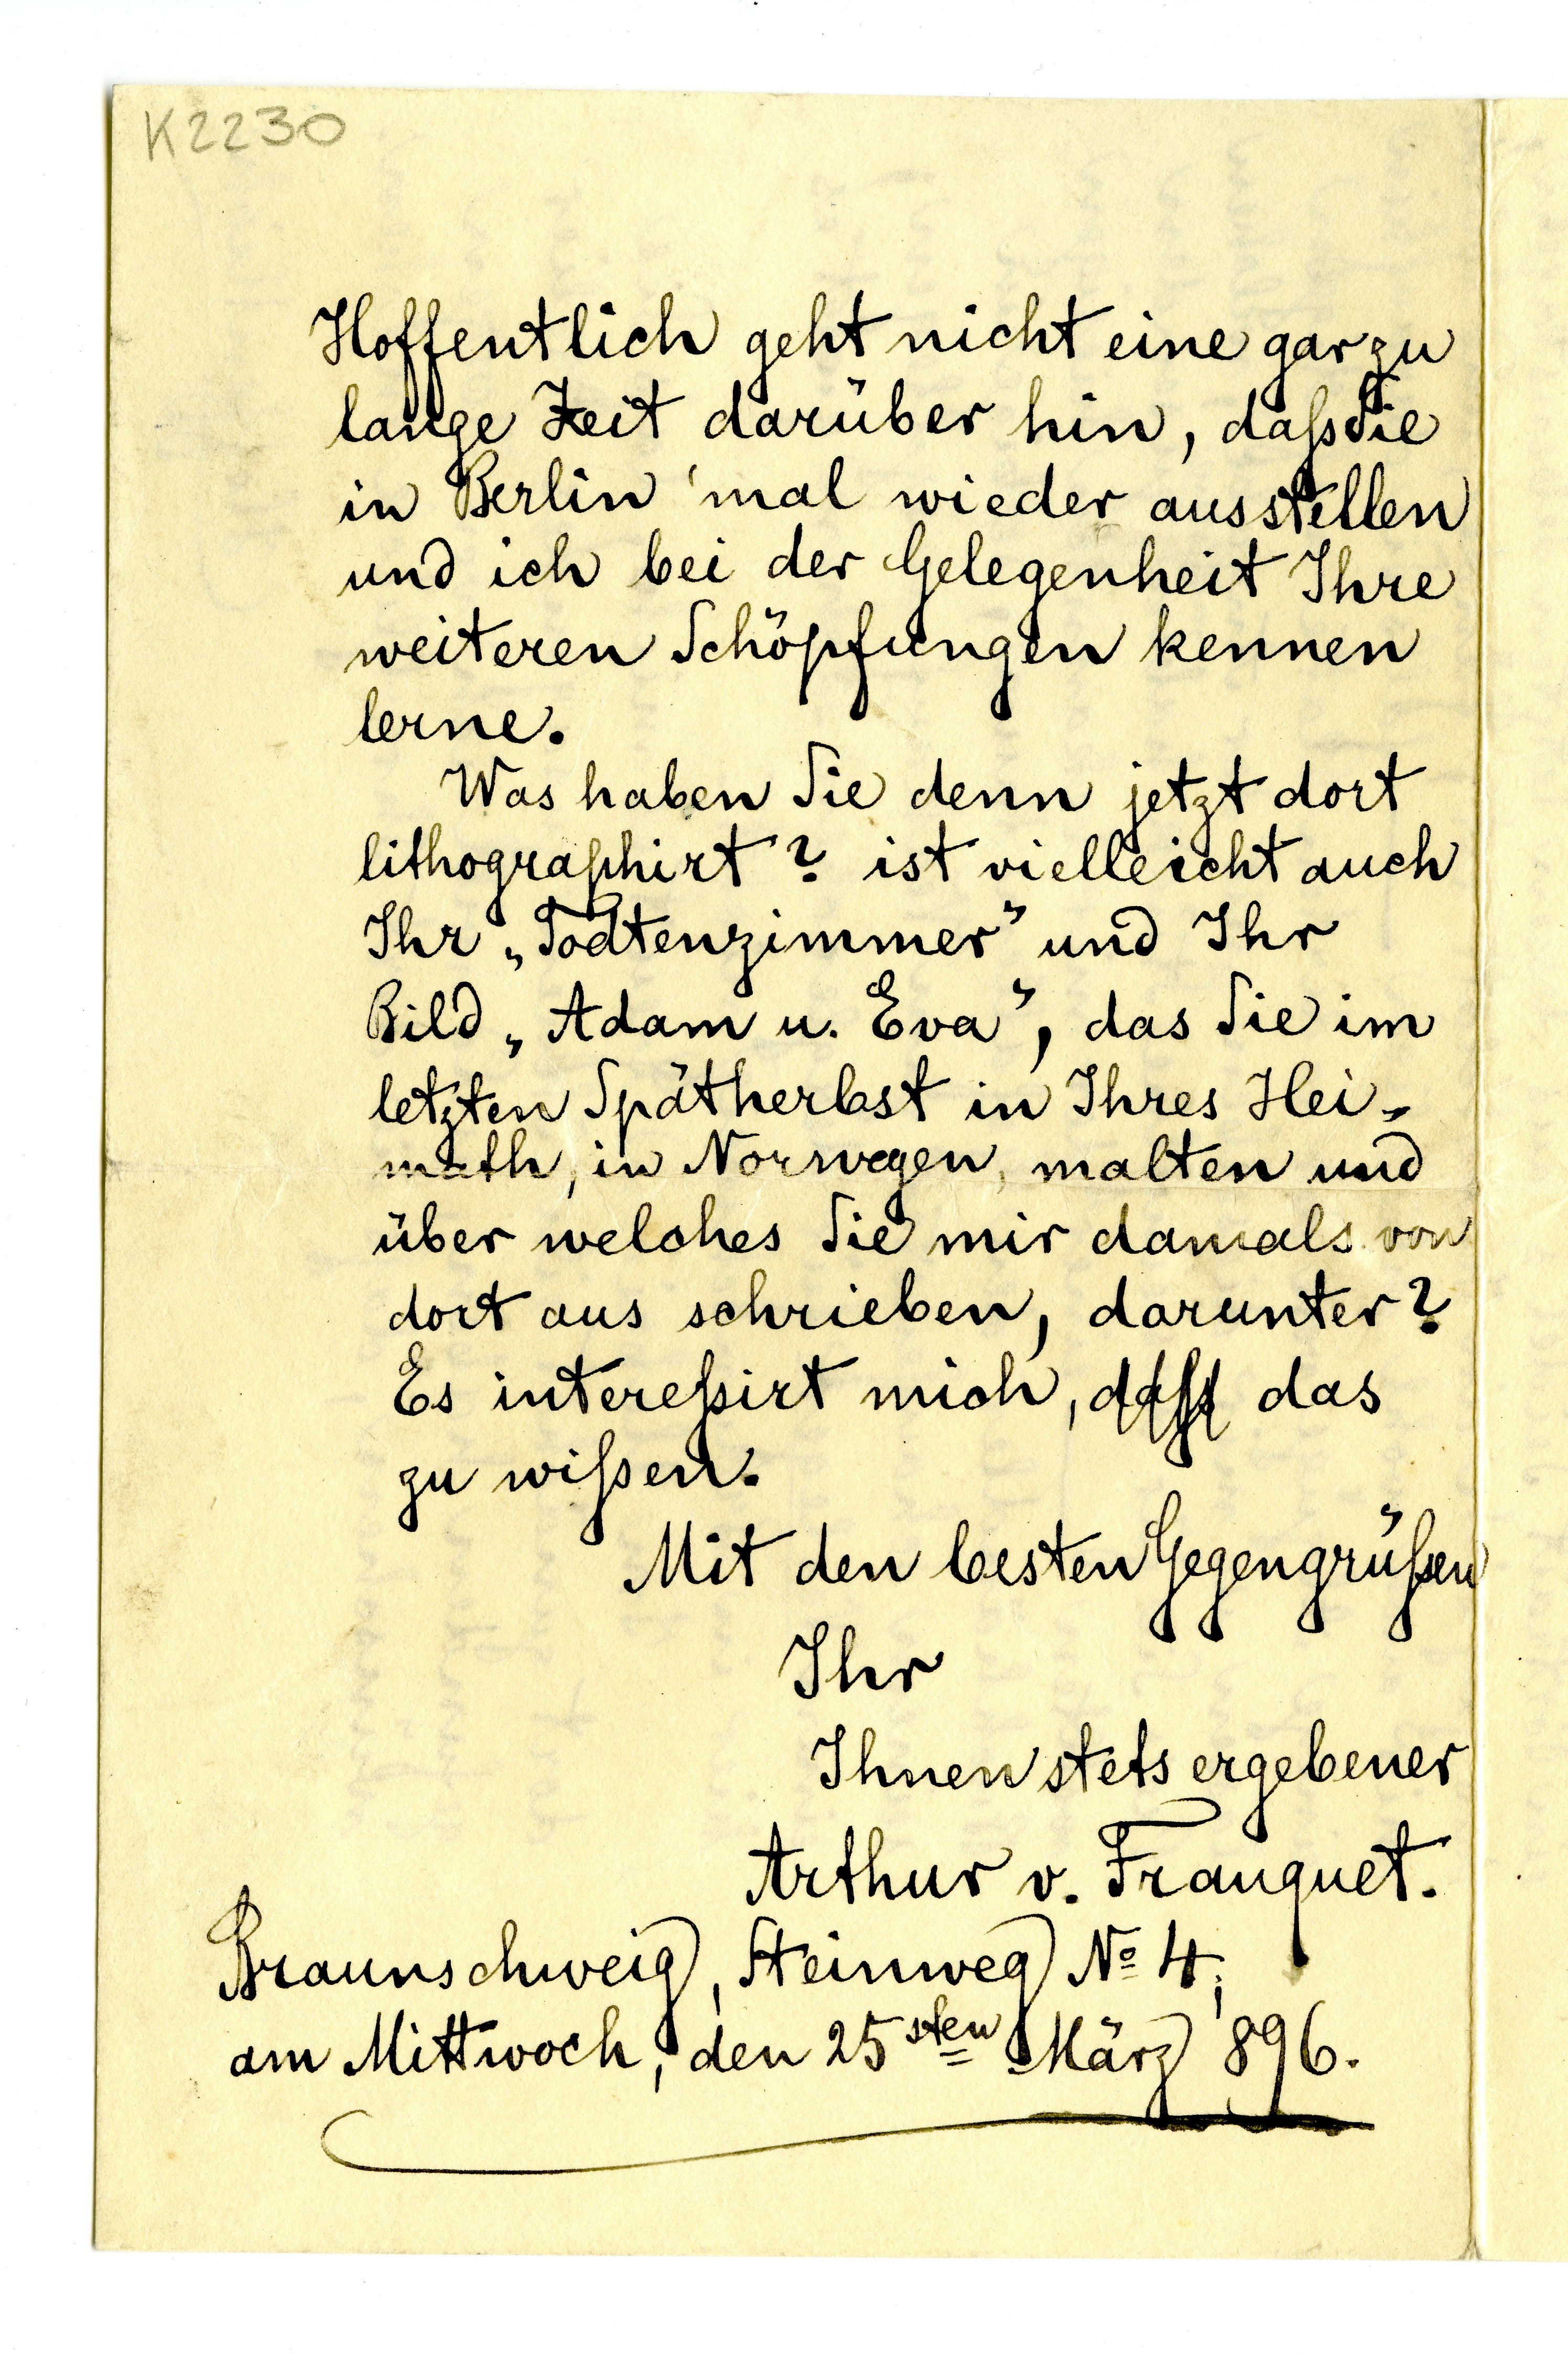 K2230
Hoffentlich geht nicht eine gar zu
lange Zeit darüber hin, daß Sie
in Berlin 'mal wieder ausstellen
und ich bei der Gelegenheit Ihre
weiteren Schöpfungen kennen
lerne.
Was haben Sie denn jetzt dort
lithographirt? ist vielleicht auch
Ihr „Todtenzimmer” und Ihr
Bild „Adam u. Eva”, das Sie im
letzten Spätherbst in Ihres Hei-
math, in Norwegen, malten und
über welches Sie mir damals von
dort aus schrieben, darunter?
Es intereßirt mich, daß das
zu wißen.
Mit den besten Gegengrüßen
Ihr
Ihnen stets ergebener
Arthur v. Franquet.
Braunschweig, Steinweg No 4;
am Mittwoch, den 25sten März '896.